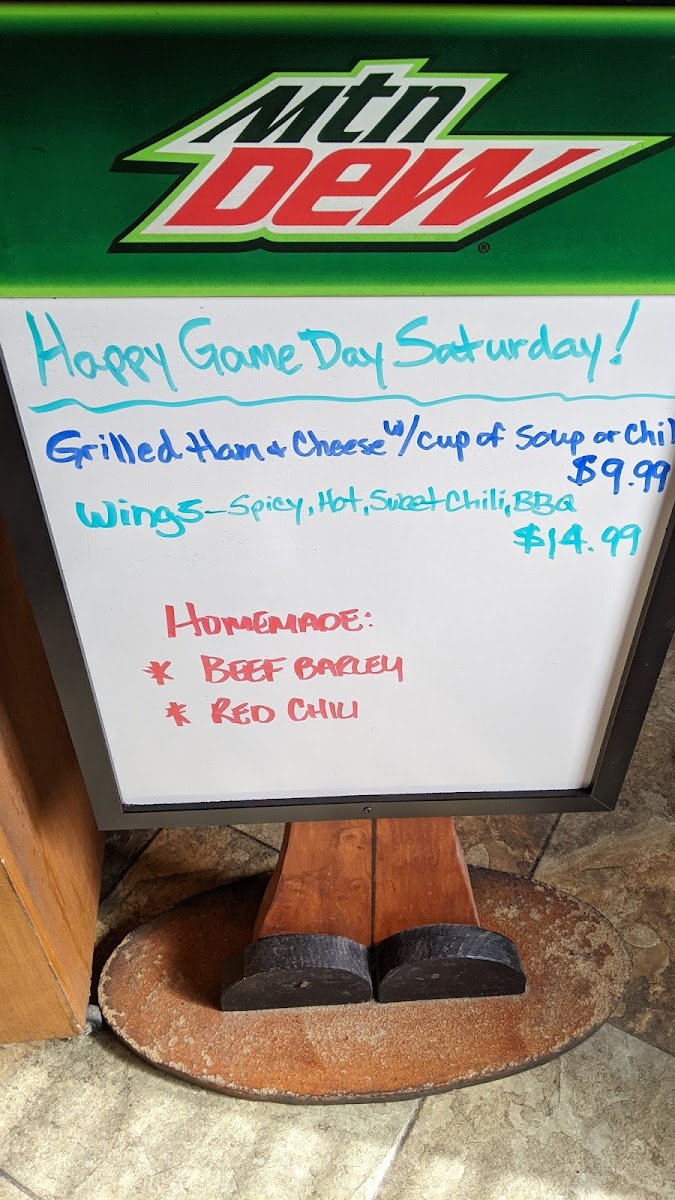 Mtn
Dew
®
Happy Game Day Saturday!
Grilled Ham & Cheese w/cup of Soup or Chil
$9.99
Wings-Spicy, Hot, Sweet Chili, BBQ
$14.99
HOMEMADE:
* BEEF BARLEY
* RED CHILI